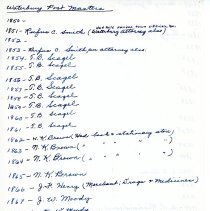 Waterbury Post Masters
1850 -
1851 - Rufus C. Smith (Waterbury attorney also)
1852 -
1853 - Rufus C. Smith, an attorney also
1854 - J.B. Scagel
1855 - J.B. Scagel
1856 - J.B. Scagel
1857 - J.B. Scagel
1858 - J.B. Scagel
1859 - J.B. Scagel
1860 - J.B. Scagel
1861 - J.B. Scagel
1862 - N.K. Brown (Had book & stationery store)
1863 - N.K. Brown ( " " " " )
1864 - N.K. Brown ( " " " " )
1865 -
1866 - J.F. Henry (Merchant, Drugs & Medicines)
1867 - J.W. Moody
J.W. Moody